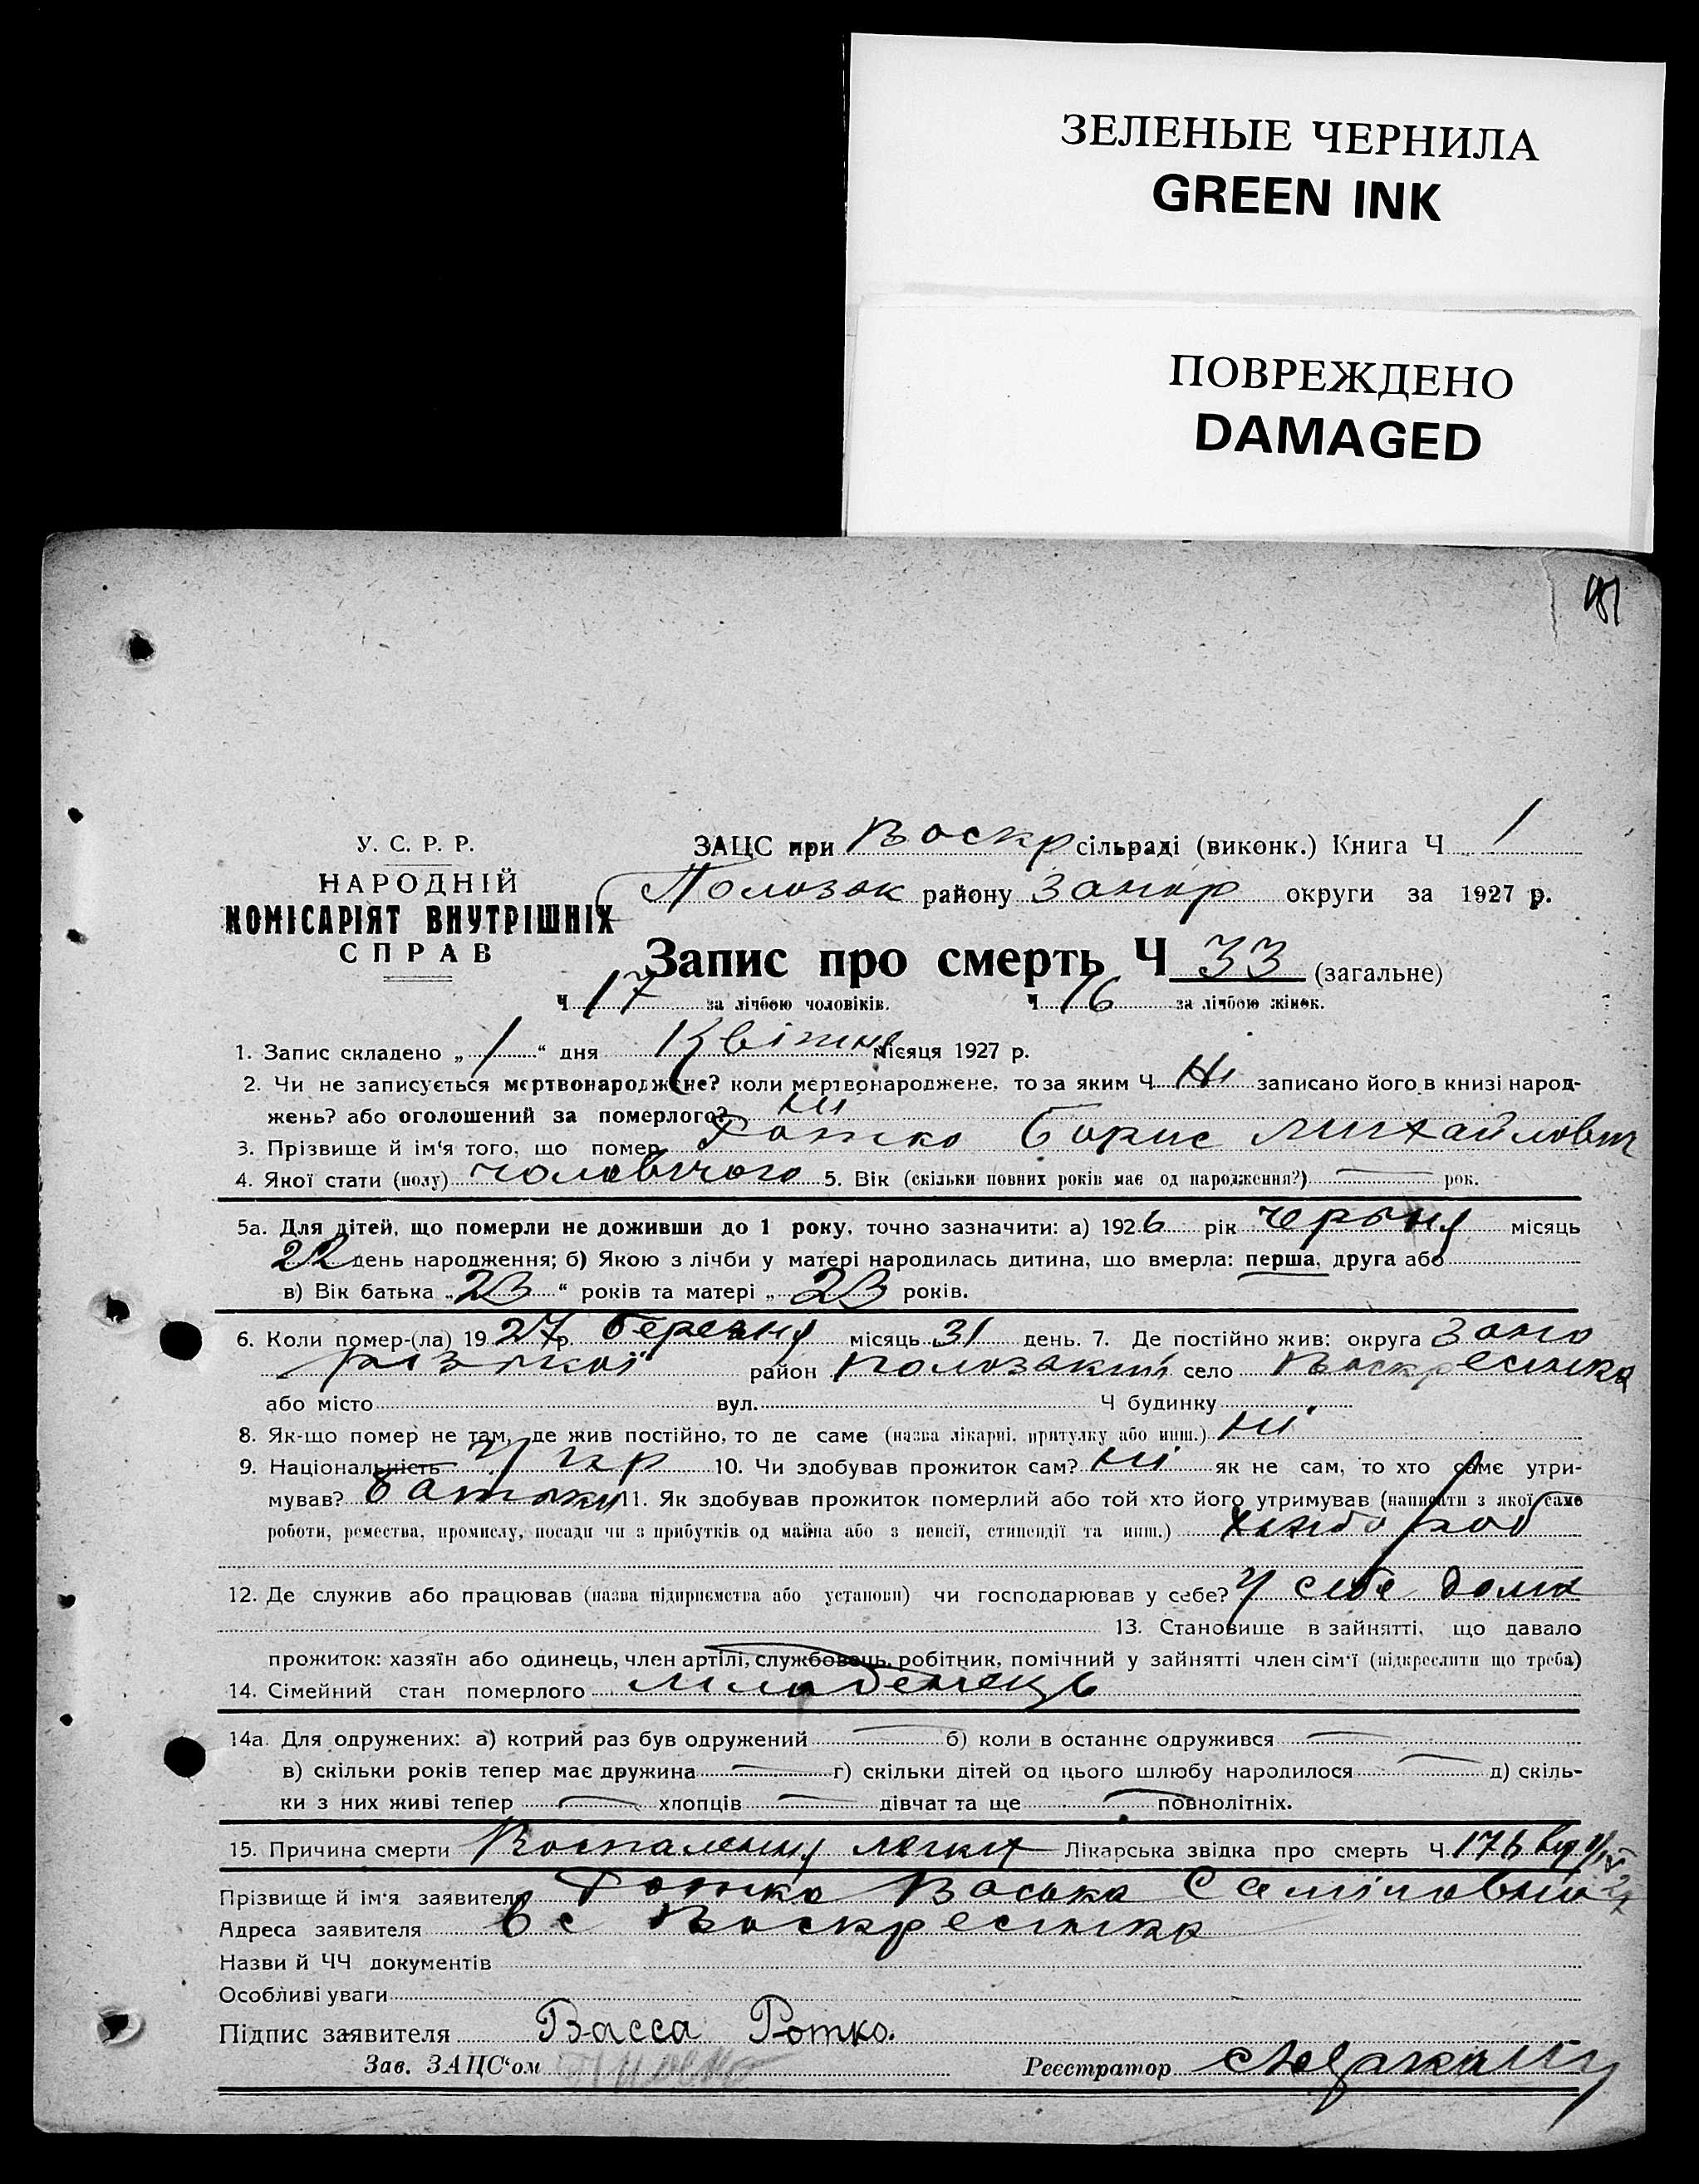 ЗЕЛЕНЫЕ ЧЕРНИЛА
GREEN INK
ПОВРЕЖДЕНО
DAMAGED
У. С. Р. Р.
НАРОДНІЙ
КОМІСАРІЯТ ВНУТРІШНІХ
СПРАВ
ЗАЦС при Воскр сільраді (виконк.) Книга Ч 1
Полозьк району Запор округи за 1927 р.
Запис про смерть Ч 33 (загальне)
Ч 17 за лічбою чоловіків. Ч 16 за лічбою жінок.
1. Запис складено „ 1 “ дня Квітня місяця 1927 р.
2. Чи не записується мертвонароджене? коли мертвонароджене, то за яким Ч Ні записано його в книзі народ-
жень? або оголошений за померлого? ні
3. Прізвище й ім‘я того, що помер Ротко Борис Михайлович
4. Якої стати (полу) чоловічого 5. Вік (скільки повних років має од народження?) — рок.
5а. Для дітей, що померли не доживши до 1 року, точно зазначити: а) 1926 рік червня місяць
22 день народження; б) Якою з лічби у матері народилась дитина, що вмерла: перша, друга або
в) Вік батька „ 23 “ років та матері „ 23 років.
6. Коли помер-(ла) 19 27 р. березня місяць 31 день. 7. Де постійно жив: округа Запо
різької район Полозький село Воскресенка
або місто вул. Ч будинку
8. Як-що помер не там, де жив постійно, то де саме (назва лікарні, притулку або инш.) ні
9. Національність Укр 10. Чи здобував прожиток сам? ні як не сам, то хто саме утри-
мував? батьки 11. Як здобував прожиток померлий або той хто його утримував (написати з якої саме
роботи, ремества, промислу, посади чи з прибутків од майна або з пенсії, стипендії та инш.) хлібороб
12. Де служив або працював (назва підприємства або установи) чи господарював у себе? У себе дома
13. Становище в зайнятті, що давало
прожиток: хазяїн або одинець, член артілі, службовець, робітник, помічний у зайнятті член сім‘ї (підкреслити що треба)
14. Сімейний стан померлого младенець
14а. Для одружених: а) котрий раз був одружений — б) коли в останнє одружився —
в) скільки років тепер має дружина — г) скільки дітей од цього шлюбу народилося — д) скіль-
ки з них живі тепер — хлопців — дівчат та ще — повнолітніх.
15. Причина смерти Воспаления легких Лікарська звідка про смерть Ч. 176 від 1/IV 27
Прізвище й ім‘я заявителя Ротко Васька
Адреса заявителя в с Воскресенка
Назви й ЧЧ документів
Особливі уваги
Підпис заявителя Васса Ротко.
Зав. ЗАЦС‘ом
Реєстратор